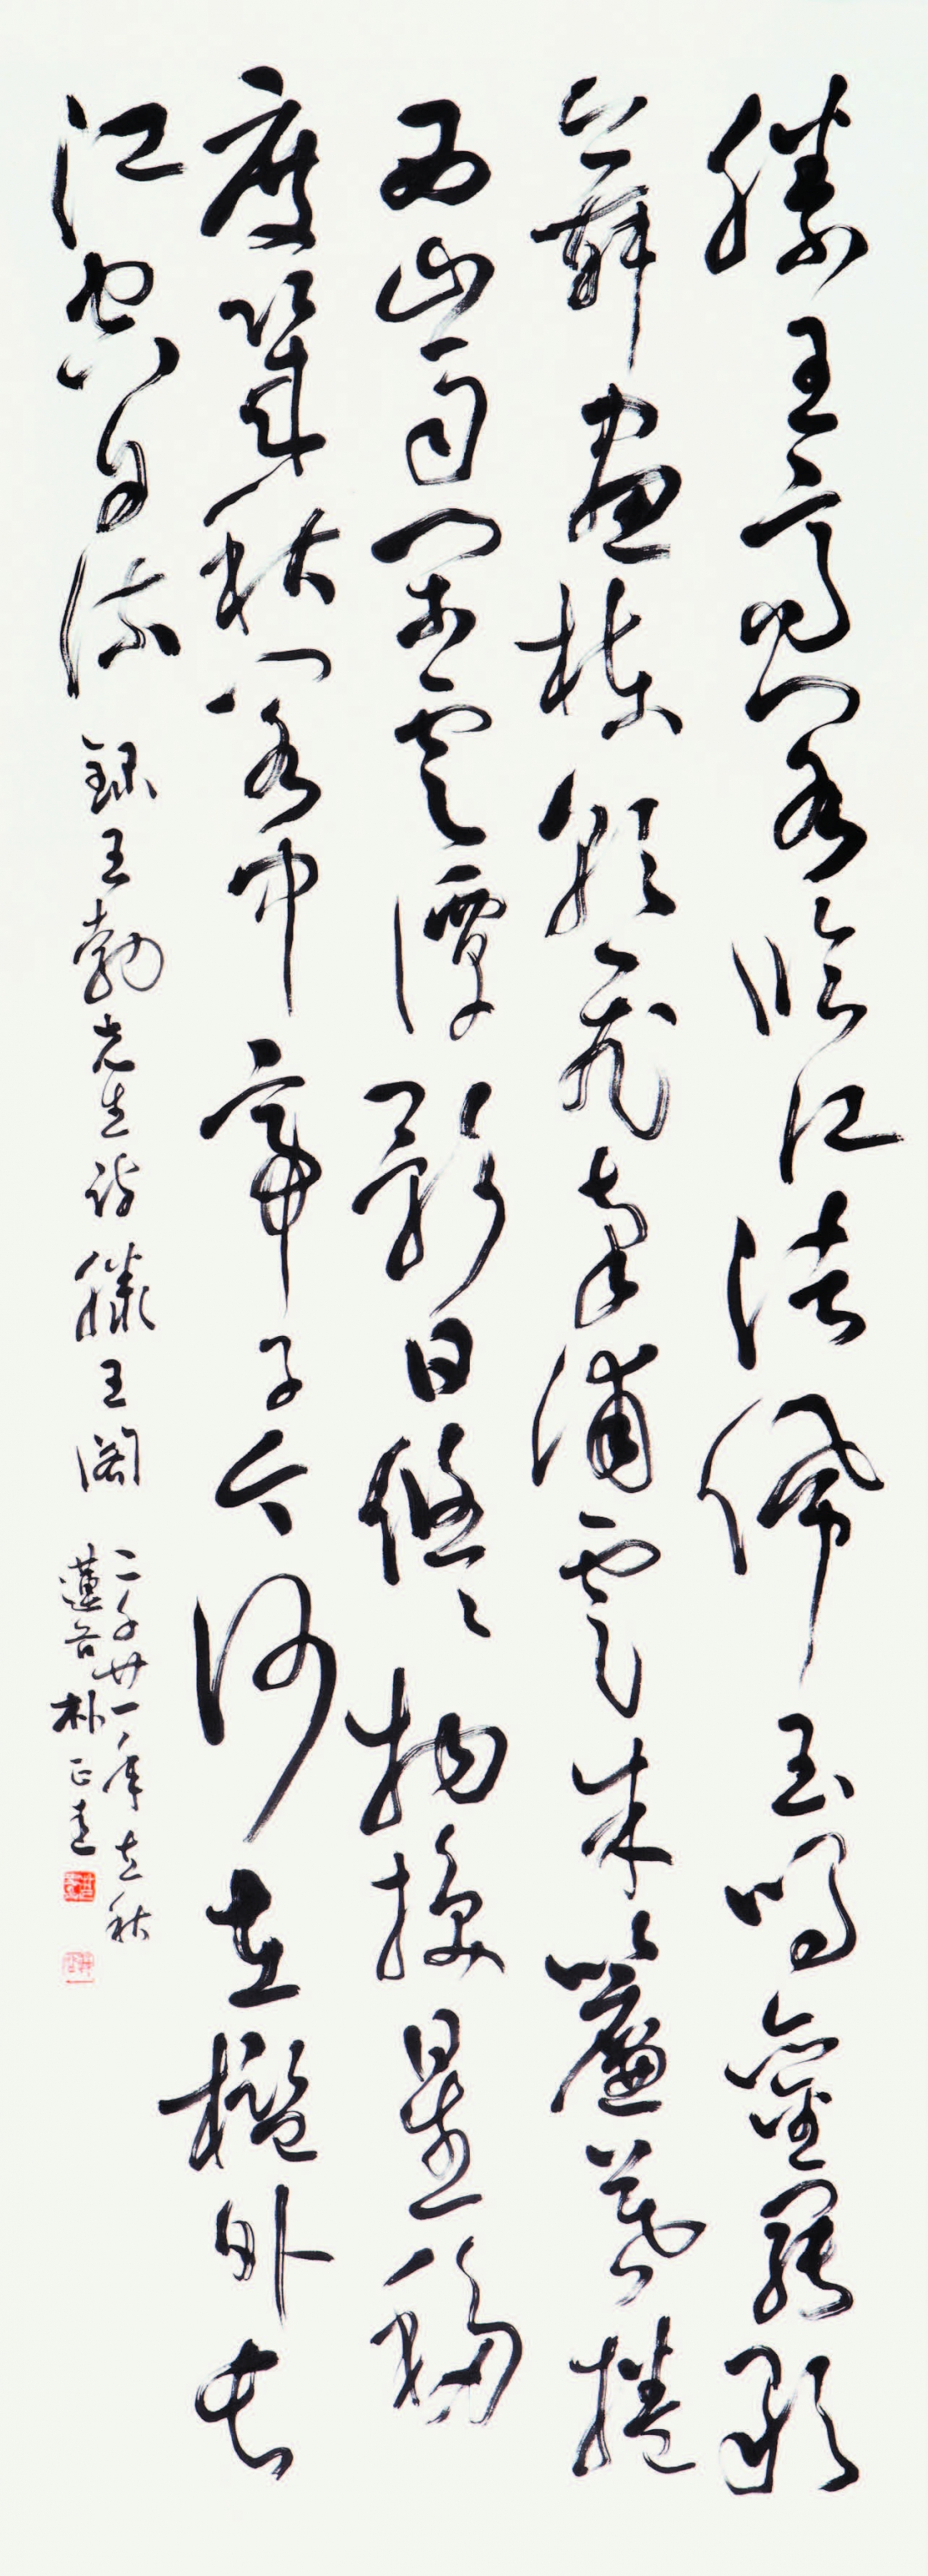 滕王高閣臨江渚佩玉鳴鑾罷歌
舞畫棟朝飛南浦雲朱簾暮捲
西山雨閑雲潭影日悠々物換星移
度幾秋閣中帝子今何在檻外長
江空自流 錄王勃先生詩滕王閣
二千廿一年立秋
蓮谷朴正